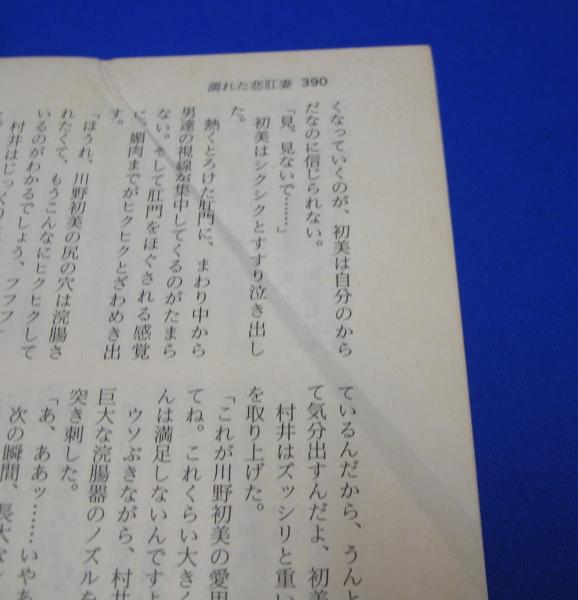 濡れた悲肛妻 390
くなっていくのが、初美は自分のから
だなのに信じられない。
「見、見ないで……」
初美はシクシクとすすり泣き出し
た。
熱くとろけた肛門に、まわり中から
男達の視線が集中してくるのがたまら
ない。そして肛門をほぐされる感覚
に、媚肉までがヒクヒクとざわめき出
す。
「ほうれ、川野初美の尻の穴は浣腸さ
れたくて、もうこんなにヒクヒクして
いるのがわかるでしょう、フフフ」
村井はじっく
ているんだから、うんと
て気分出すんだよ、初美
村井はズッシリと重い
を取り上げた。
「これが川野初美の愛用
てね。これくらい大きく
んは満足しないんですよ
ウソぶきながら、村井
巨大な浣腸器のノズルを
突き刺した。
「あ、ああッ……いやあ
次の瞬間、長大な